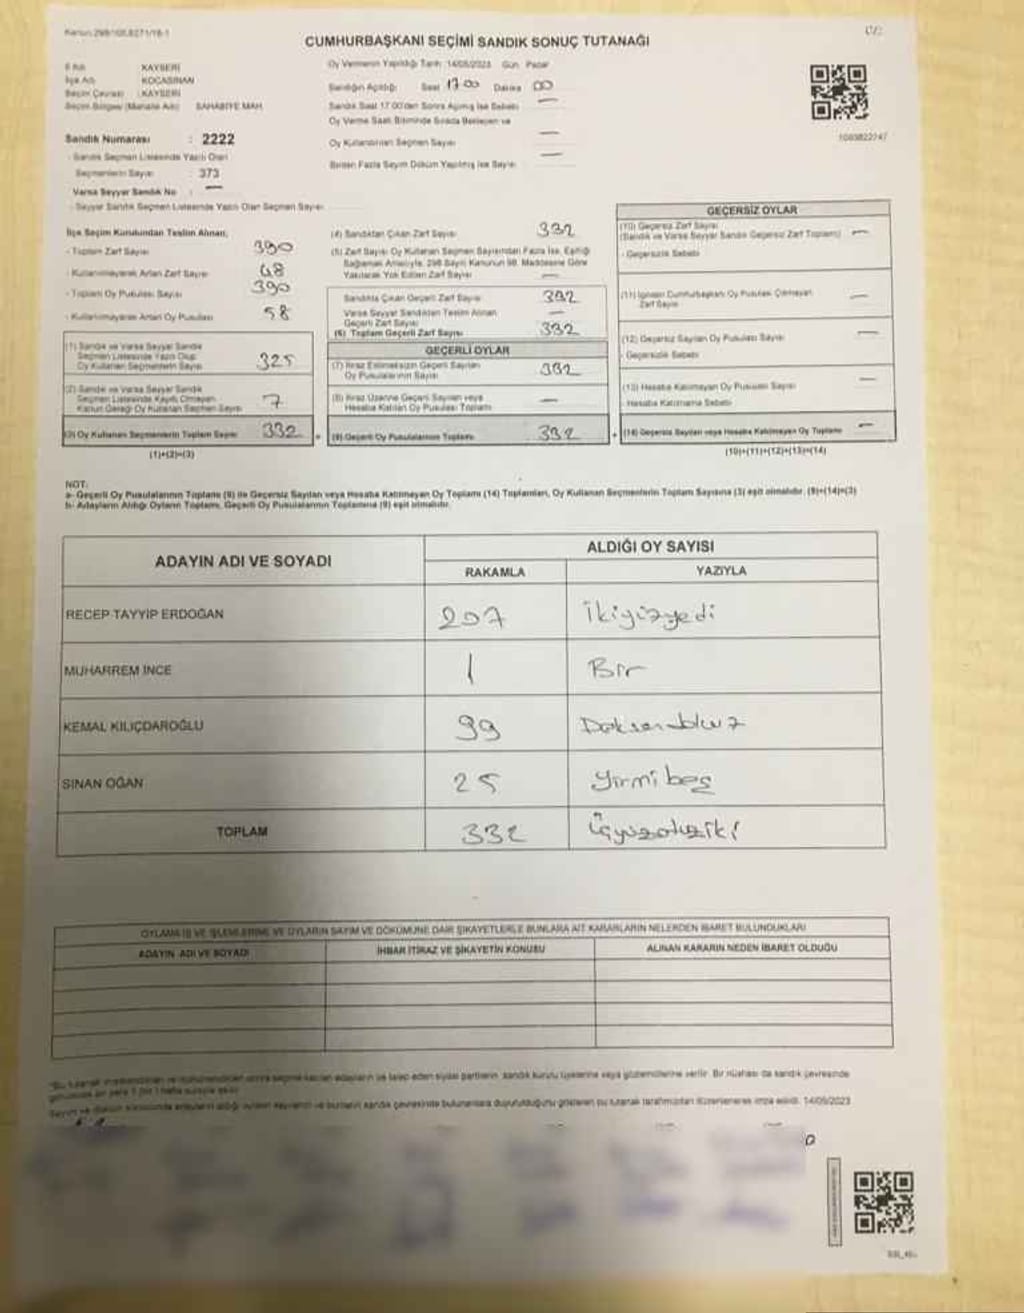 Kanun:298/105,6271/16-1
CUMHURBAŞKANI SEÇİMİ SANDIK SONUÇ TUTANAĞI
İl Adı KAYSERİ
İlçe Adı KOCASİNAN
Seçim Çevresi : KAYSERİ
Seçim Bölgesi (Mahalle Adı) SAHABİYE MAH.
Sandık Numarası : 2222
- Sandık Seçmen Listesinde Yazılı Olan
Seçmenlerin Sayısı : 373
Varsa Seyyar Sandık No : —
- Seyyar Sandık Seçmen Listesinde Yazılı Olan Seçmen Sayısı
Oy Vermenin Yapıldığı Tarih: 14/05/2023 Gün: Pazar
Sandığın Açıldığı Saat 17 00 Dakika 00
Sandık Saat 17.00'den Sonra Açılmış İse Sebebi —
Oy Verme Saati Bitiminde Sırada Bekleyen ve
Oy Kullandırılan Seçmen Sayısı —
Birden Fazla Sayım Döküm Yapılmış İse Sayısı —
1003822747
İlçe Seçim Kurulundan Teslim Alınan;
- Toplam Zarf Sayısı 390
- Kullanılmayarak Artan Zarf Sayısı
- Toplam Oy Pusulası Sayısı 390
- Kullanılmayarak Artan Oy Pusulası 58
(1) Sandık ve Varsa Seyyar Sandık
Seçmen Listesinde Yazılı Olup
Oy Kullanan Seçmenlerin Sayısı 325
(2) Sandık ve Varsa Seyyar Sandık
Seçmen Listesinde Kayıtlı Olmayan
Kanun Gereği Oy Kullanan Seçmen Sayısı 7
(3) Oy Kullanan Seçmenlerin Toplam Sayısı 332
(1)+(2)=(3)
(4) Sandıktan Çıkan Zarf Sayısı 332
(5) Zarf Sayısı Oy Kullanan Seçmen Sayısından Fazla İse, Eşitliği
Sağlamak Amacıyla, 298 Sayılı Kanunun 98. Maddesine Göre
Yakılarak Yok Edilen Zarf Sayısı —
Sandıkta Çıkan Geçerli Zarf Sayısı 332
Varsa Seyyar Sandıktan Teslim Alınan
Geçerli Zarf Sayısı —
(6) Toplam Geçerli Zarf Sayısı 332
GEÇERLİ OYLAR
(7) İtiraz Edilmeksizin Geçerli Sayılan
Oy Pusulalarının Sayısı 332
(8) İtiraz Üzerine Geçerli Sayılan veya
Hesaba Katılan Oy Pusulası Toplamı —
(9) Geçerli Oy Pusulalarının Toplamı 332
GEÇERSİZ OYLAR
(10) Geçersiz Zarf Sayısı
(Sandık ve Varsa Seyyar Sandık Geçersiz Zarf Toplamı) —
- Geçersizlik Sebebi
(11) İçinden Cumhurbaşkanı Oy Pusulası Çıkmayan
Zarf Sayısı —
(12) Geçersiz Sayılan Oy Pusulası Sayısı —
- Geçersizlik Sebebi
(13) Hesaba Katılmayan Oy Pusulası Sayısı —
- Hesaba Katılmama Sebebi
(14) Geçersiz Sayılan veya Hesaba Katılmayan Oy Toplamı —
(10)+(11)+(12)+(13)=(14)
NOT:
a- Geçerli Oy Pusulalarının Toplamı (9) ile Geçersiz Sayılan veya Hesaba Katılmayan Oy Toplamı (14) Toplamları, Oy Kullanan Seçmenlerin Toplam Sayısına (3) eşit olmalıdır. (9)+(14)=(3)
b- Adayların Aldığı Oyların Toplamı, Geçerli Oy Pusulalarının Toplamına (9) eşit olmalıdır.
ADAYIN ADI VE SOYADI ALDIĞI OY SAYISI
RAKAMLA YAZIYLA
RECEP TAYYİP ERDOĞAN 207 İkiyüzyedi
MUHARREM İNCE 1 Bir
KEMAL KILIÇDAROĞLU 99 Doksandokuz
SİNAN OĞAN 25 Yirmibeş
TOPLAM 332 Üçyüzotuziki
OYLAMA İŞ VE İŞLEMLERİNE VE OYLARIN SAYIM VE DÖKÜMÜNE DAİR ŞİKAYETLERLE BUNLARA AİT KARARLARIN NELERDEN İBARET BULUNDUKLARI
ADAYIN ADI VE SOYADI İHBAR İTİRAZ VE ŞİKAYETİN KONUSU ALINAN KARARIN NEDEN İBARET OLDUĞU
sandık kurulu üyelerine veya gözlemcilerine verilir. Bir nüshası da sandık çevresinde
sandık çevresinde bulunanlara duyurulduğunu gösteren bu tutanak tarafımızdan düzenlenerek imza edildi. 14/05/2023